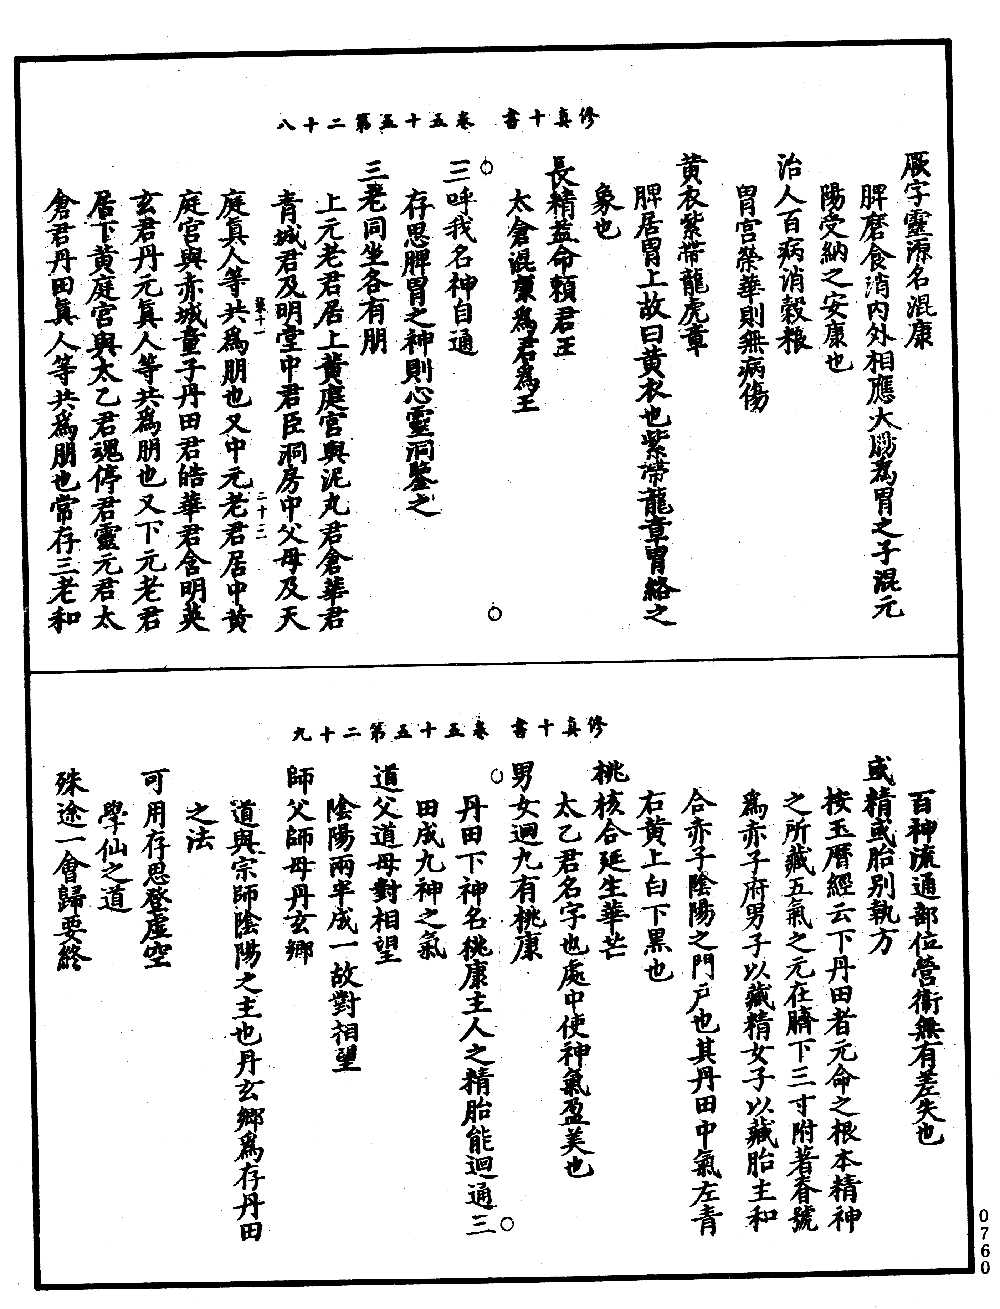 修真十書　卷五十五第二十八
厥字靈源名混康
脾磨食消內外相應大腸為胃之子混元
陽受納之安康也
治人百病消穀粮
胃宮榮華則無病傷
黃衣紫帶龍虎章
脾居胃上故曰黃衣也紫帶龍章胃絡之
象也
長精益命賴君王
太倉混康為君為王
三呼我名神自通
存思脾胃之神則心靈洞鑒之
三老同坐各有朋
上元老君居上黃庭宮與泥丸君倉華君
青城君及明堂中君臣洞房中父母及天
庭真人等共為朋也又中元老君居中黃
庭宮與赤城童子丹田君皓華君含明英
玄君丹元真人等共為朋也又下元老君
居下黃庭宮與太乙君魂停君靈元君太
倉君丹田真人等共為朋也常存三老和
二十三
修真十書　卷五十五第二十九
百神流通部位營衛無有差失也
或精或胎別執方
按玉曆經云下丹田者元命之根本精神
之所藏五氣之元在臍下三寸附著脊號
為赤子府男子以藏精女子以藏胎主和
合赤子陰陽之門戶也其丹田中氣左青
右黃上白下黑也
桃核合延生華芒
太乙君名字也處中使神氣盈美也
男女迴九有桃康
丹田下神名桃康主人之精胎能迴通三
田成九神之氣
道父道母對相望
陰陽兩半成一故對相望
師父師母丹玄鄉
道與宗師陰陽之主也丹玄鄉為存丹田
之法
可用存思登虛空
學仙之道
殊途一會歸要終
0760